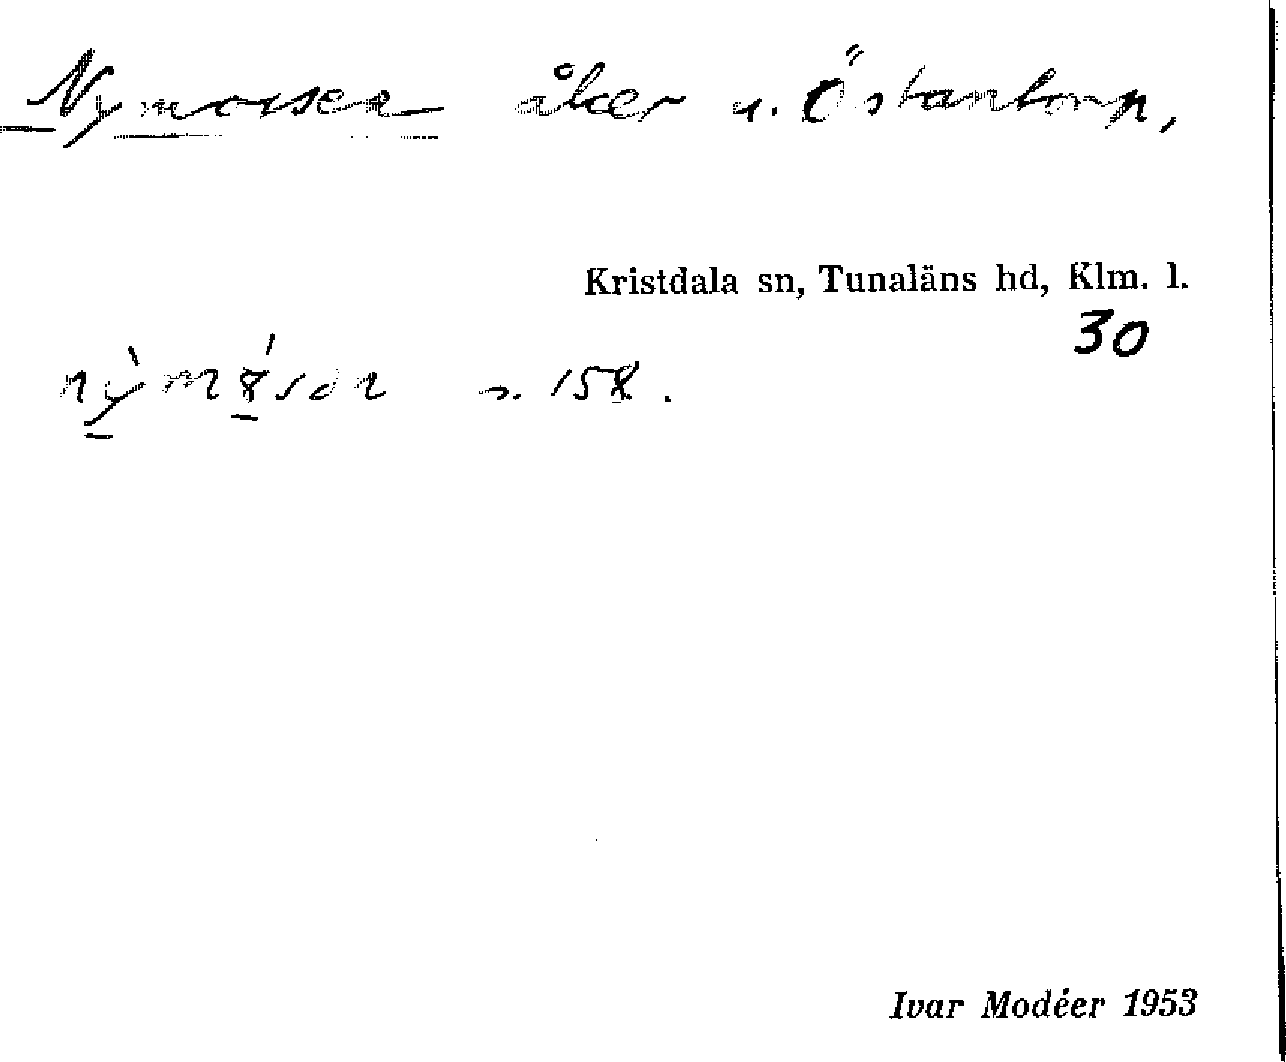 Nymossen åker u. Östantorp,
Kristdala sn, Tunaläns hd, Klm. l.
30
s. 158.
Ivar Modéer 1953